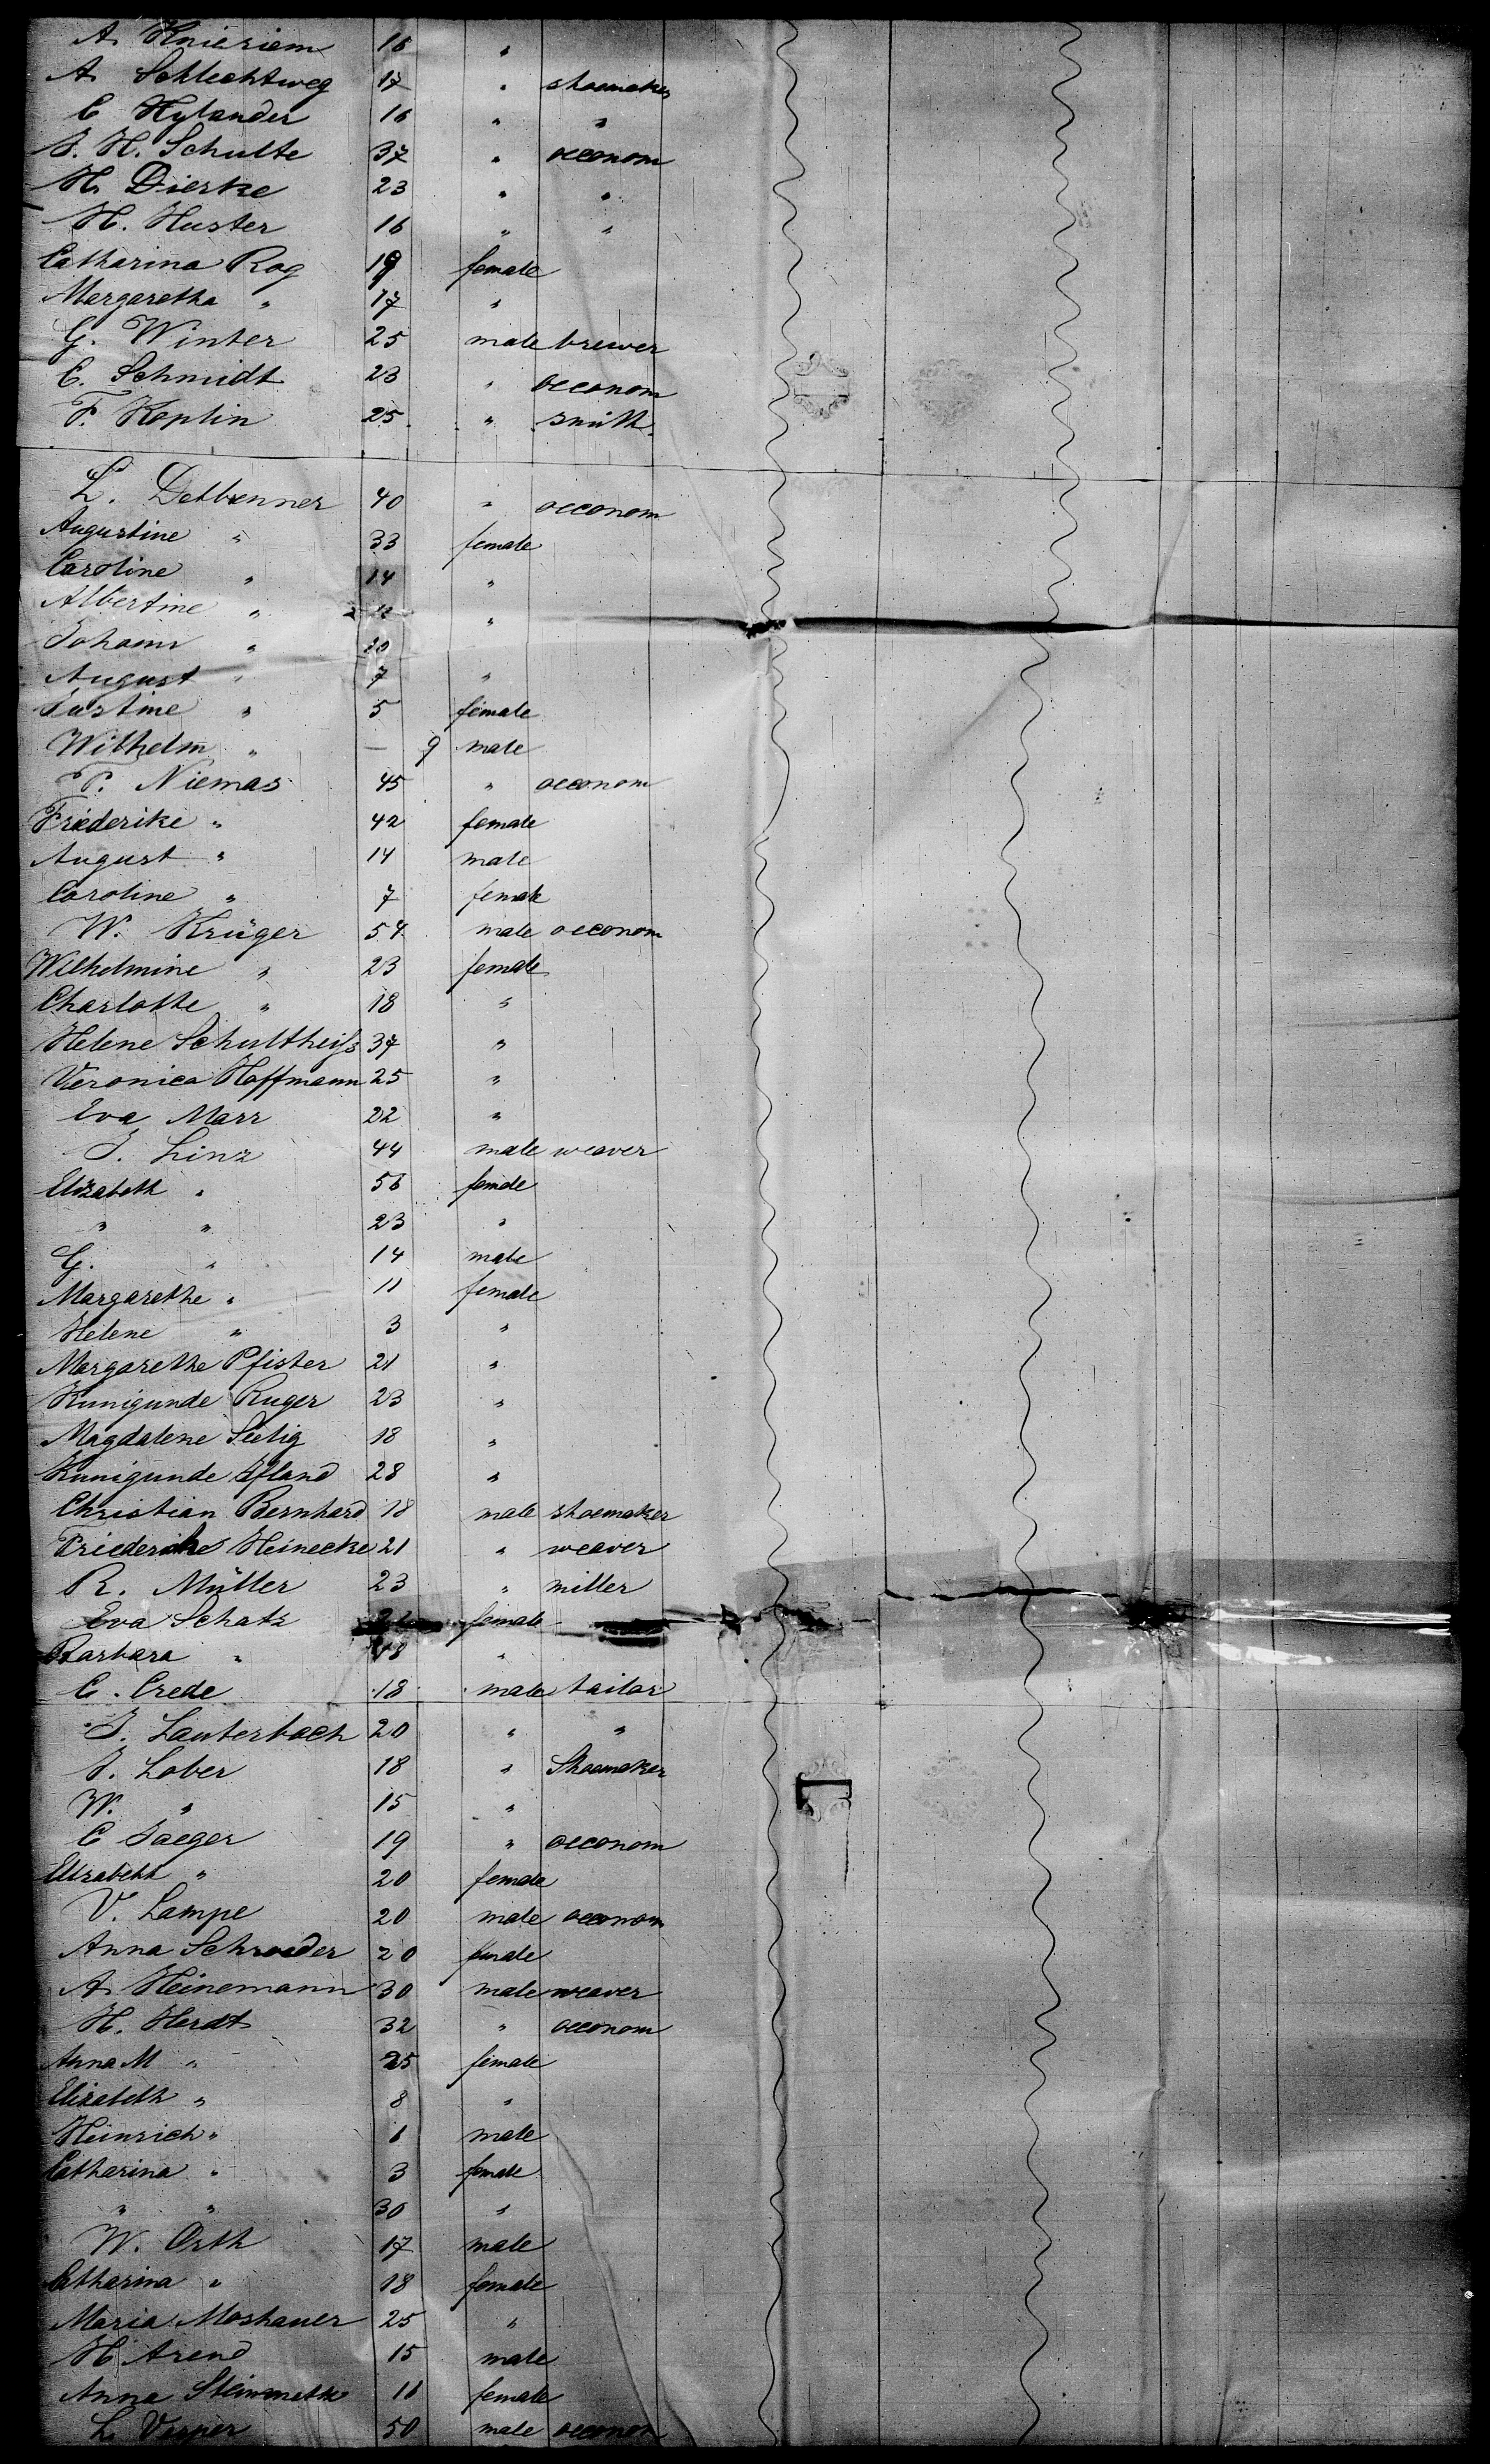 A. Knieriem 16 "
A. Schlechtweg 17 " shoemaker
C Hylander 16 " "
J. H. Schulte 37 " oeconom
H. Dierke 23 " "
H. Huster 16 " "
Catharina Rog 19 female
Margaretha " 17 "
G. Winter 25 male brewer
C. Schmidt 23 " oeconom
F. Keplin 25 " smith
L. Detbenner 40 " oeconom
Augustine " 33 female
Caroline " 14 "
Albertine " 11 "
Johann " 10
August " 7 "
Justine " 5 female
Wilhelm " — 9 male
T. Niemas 45 " oeconom
Friederike " 42 female
August " 14 male
Caroline " 7 female
W. Krüger 54 male oeconom
Wilhelmine " 23 female
Charlotte " 18 "
Helene Schultheifs 37 "
Veronica Hoffmann 25 "
Eva Marr 22 "
J. Linz 44 male weaver
Elizabeth " 56 female
" " 23 "
G. " 14 male
Margarethe " 11 female
Helene " 3 "
Margarethe Pfister 21 "
Kunigunde Ruger 23 "
Magdalene Seelig 18 "
Kunigunde Ifland 28 "
Christian Bernhard 18 male shoemaker
Friederike Heinecke 21 " weaver
R. Müller 23 " miller
Eva Schatz female
Barbara " 18 "
C. Crede 18 male tailor
J. Lauterbach 20 " "
J. Lober 18 " Shoemaker
W. " 15 "
C Jaeger 19 " oeconom
Elizabeth " 20 female
V. Lampe 20 male oeconom
Anna Schroeder 20 female
A. Heinemann 30 male weaver
H. Herdt 32 " oeconom
Anna M " 25 female
Elizabeth " 8 "
Heinrich " 6 male
Catharina " 3 female
" " 30 "
W. Orth 17 male
Catharina " 18 female
Maria Moshauer 25 "
H Arend 15 male
Anna Steinmetz 16 female
L. Vesper 50 male oeconom